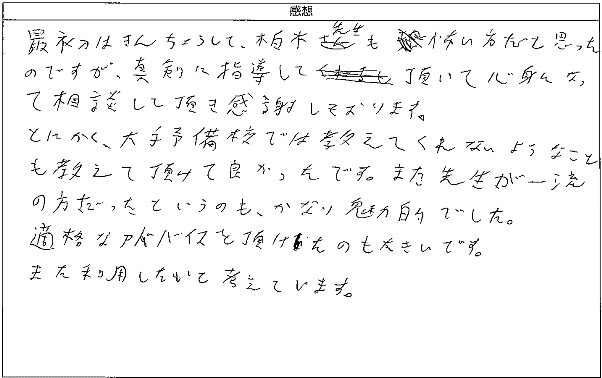 感想
最初はきんちょうして、柏木先生も怖い方だと思った
のですが、真剣に指導して頂いて心身になっ
て相談して頂き感謝しております。
とにかく、大手予備校では教えてくれないようなこと
も教えて頂けて良かったんです。また先生が一流
の方だったというのも、かなり魅力的でした。
適格なアドバイスを頂けたのも大きいです。
また利用したいと考えています。